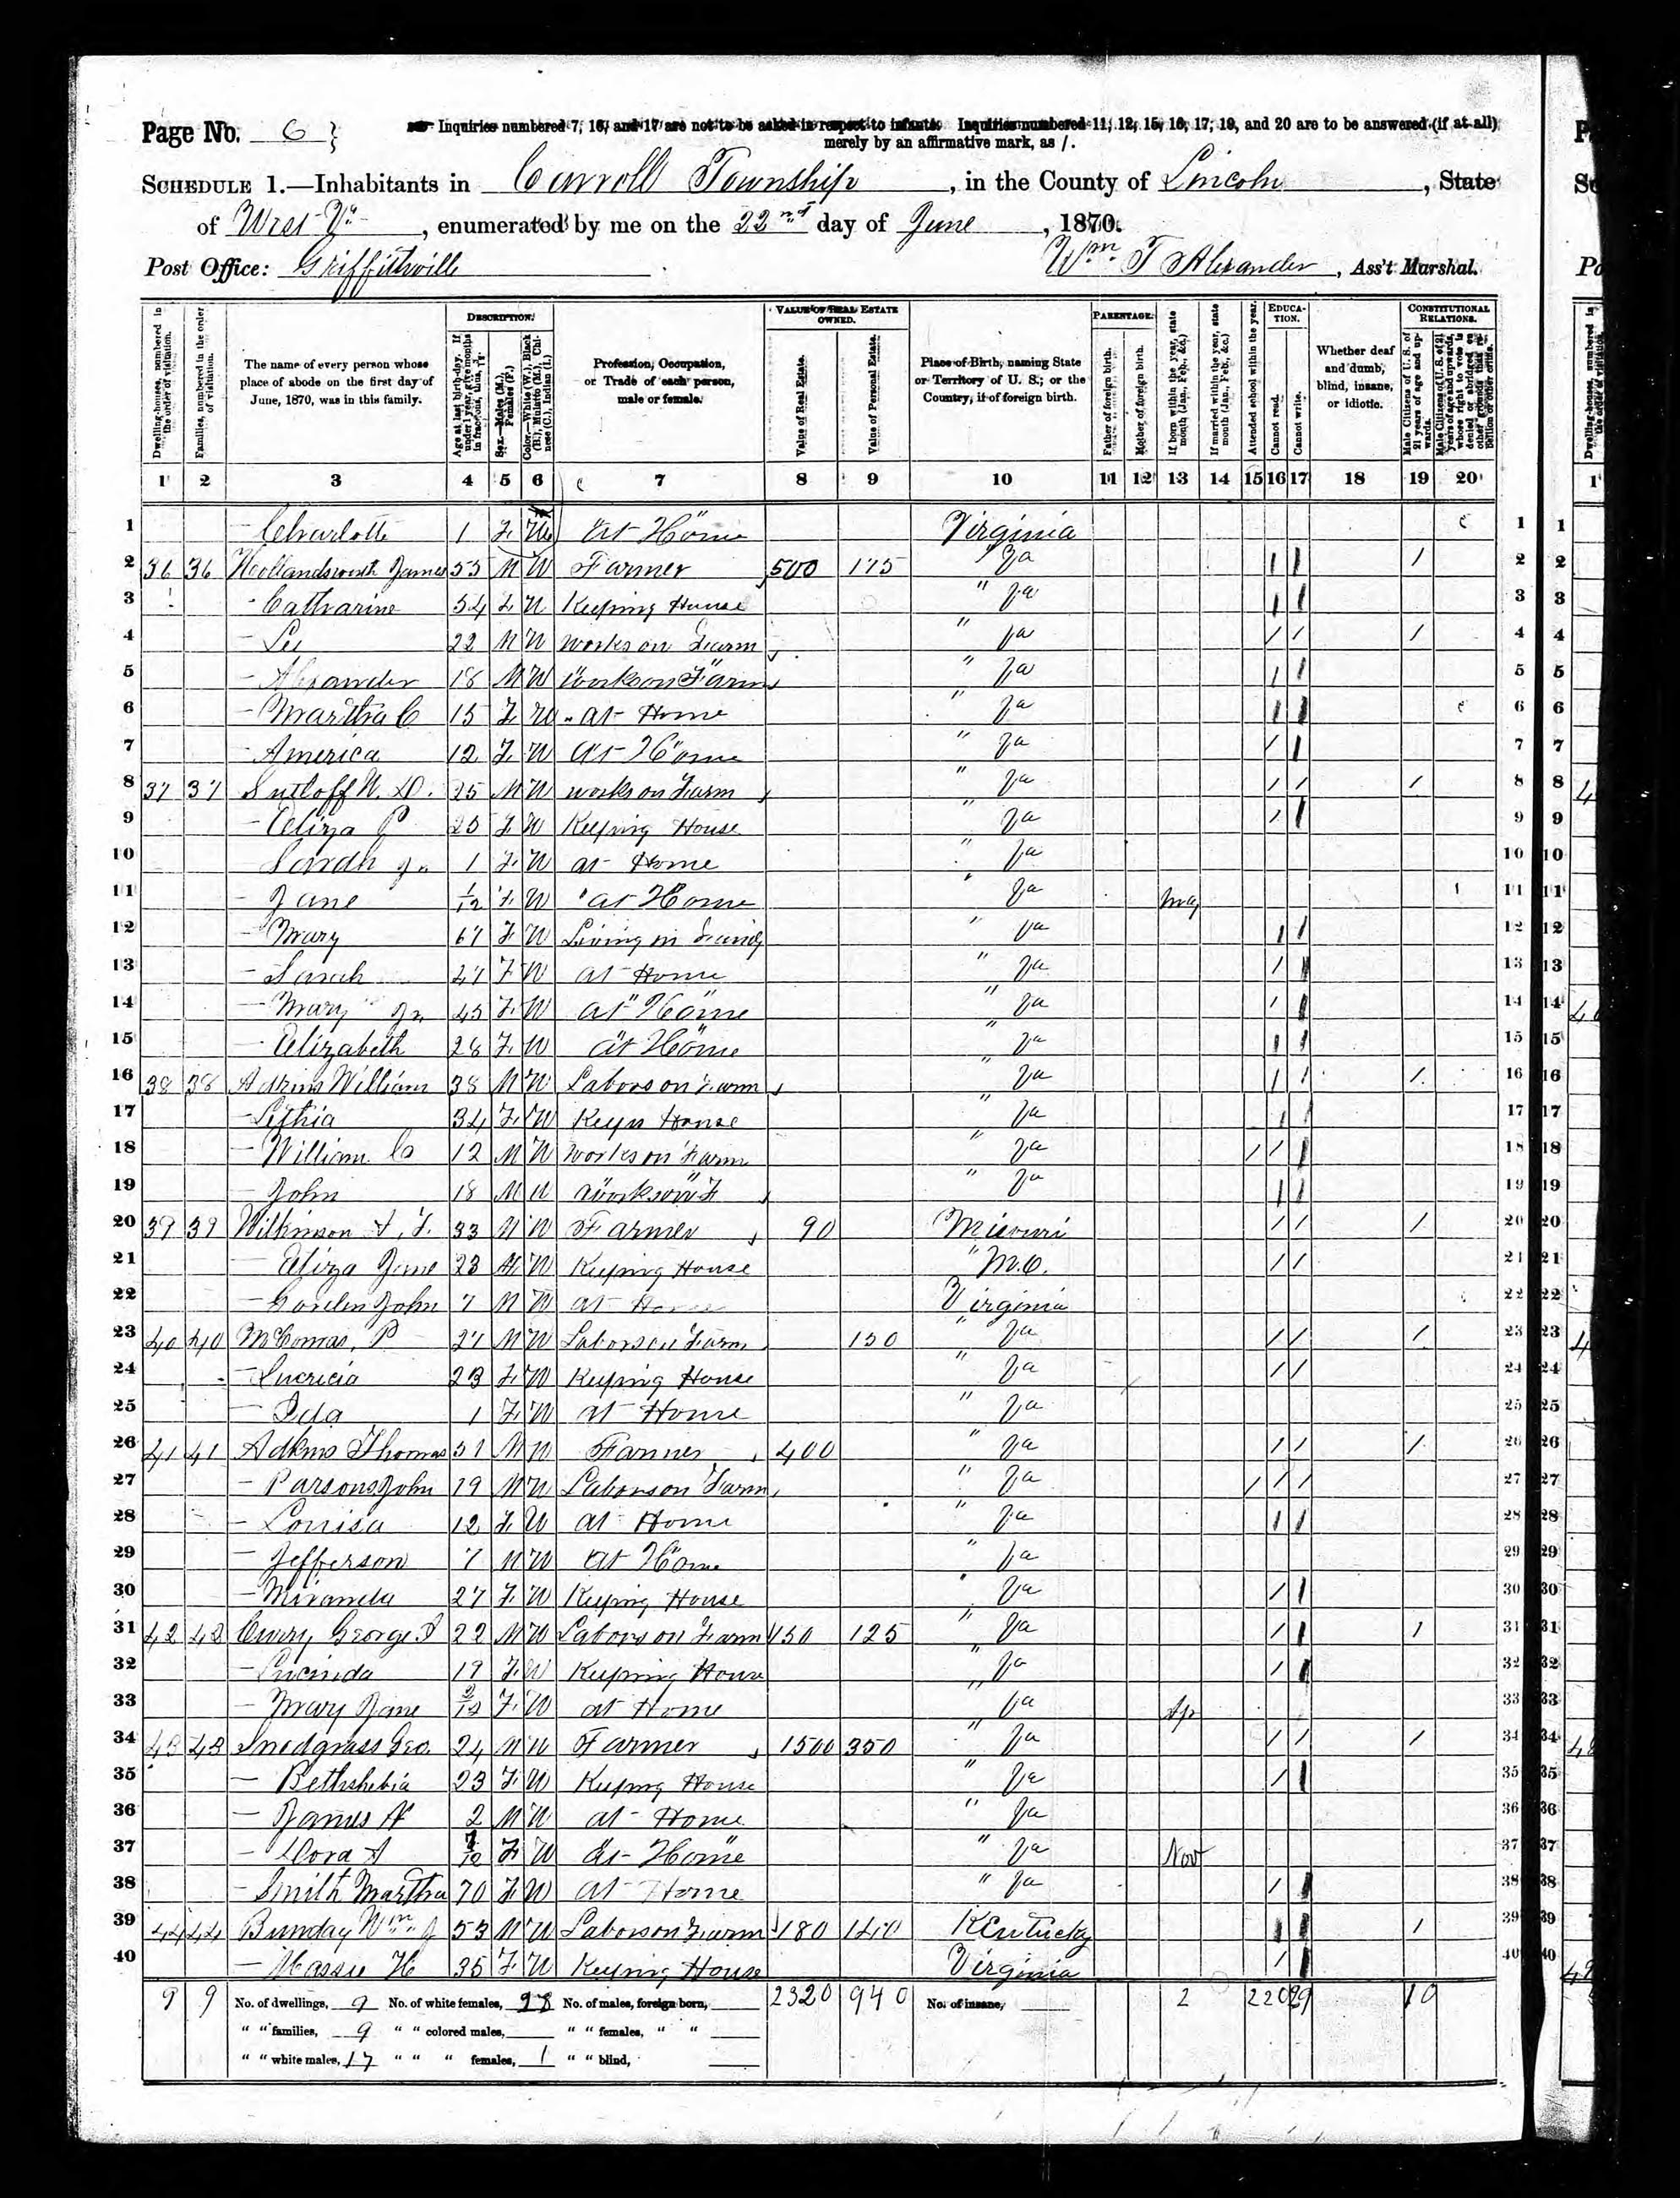 Page No. 6
Inquiries numbered 7, 16, and 17 are not to be asked in respect to infants. Inquiries numbered 11, 12, 15, 16, 17, 19, and 20 are to be answered (if at all)
merely by an affirmative mark, as /.
SCHEDULE 1.—Inhabitants in Carroll Township, in the County of Lincoln, State
of West Va, enumerated by me on the 22nd day of June, 1870.
Post Office: Griffithsville Wm T Alexander, Ass't Marshal.
Dwelling-houses, numbered in the order of visitation.
Families, numbered in the order of visitation.
The name of every person whose place of abode on the first day of June, 1870, was in this family.
DESCRIPTION.
Age at last birth-day. If under 1 year, give months in fractions, thus, 3/12.
Sex.—Males (M.), Females (F.)
Color.—White (W.), Black (B.), Mulatto (M.), Chinese (C.), Indian (I.)
Profession, Occupation, or Trade of each person, male or female.
VALUE OF REAL ESTATE OWNED.
Value of Real Estate.
Value of Personal Estate.
Place of Birth, naming State or Territory of U. S.; or the Country, if of foreign birth.
PARENTAGE.
Father of foreign birth.
Mother of foreign birth.
If born within the year, state month (Jan., Feb., &c.)
If married within the year, state month (Jan., Feb., &c.)
Attended school within the year.
EDUCATION.
Cannot read.
Cannot write.
Whether deaf and dumb, blind, insane, or idiotic.
CONSTITUTIONAL RELATIONS.
Male Citizens of U. S. of 21 years of age and upwards.
Male Citizens of U. S. of 21 years of age and upwards, whose right to vote is denied or abridged on other grounds than rebellion or other crime.
1 2 3 4 5 6 7 8 9 10 11 12 13 14 15 16 17 18 19 20
1 — Charlotte 1 F at Home Virginia 1
2 36 36 Hollandsworth James 55 M W Farmer 500 175 Va / / / 2
3 — Catharine 54 F W Keeping House " Va / / 3
4 — Lee 22 M W works on Farm " Va / / / 4
5 — Alexander 18 M W works on Farm " Va / / 5
6 — Martha C 15 F W at Home " Va / / 6
7 — America 12 F W at Home " Va / / 7
8 37 37 Sutloff W. D. 25 M W works on Farm " Va / / / 8
9 — Eliza P 25 F W Keeping House " Va / / 9
10 — Sarah Jr 1 F W at Home " Va 10
11 — Jane 1/12 F W at Home " Va May 11
12 — Mary 67 F W Living in " Va / / 12
13 — Sarah 47 F W at Home " Va / / 13
14 — Mary Jr 45 F W at Home " Va / / 14
15 — Elizabeth 28 F W at Home " Va / / 15
16 38 38 Adkins William 38 M W Labors on Farm " Va / / / 16
17 — Lethia 34 F W Keeps House " Va / / 17
18 — William Co 12 M W works on Farm " Va / / / 18
19 — John 18 M W works on F " Va / / 19
20 39 39 Wilkinson A. F. 33 M W Farmer 90 Missouri / / / 20
21 — Eliza Jane 23 W Keeping House " M.O. / / 21
22 — John 7 M W at Home Virginia 22
23 40 40 McComas, P 27 M W Labors on Farm 150 " Va / / / 23
24 — Lucricia 23 F W Keeping House " Va / / 24
25 — Ida 1 F W at Home " Va 25
26 41 41 Adkins Thomas 51 M W Farmer 400 " Va / / / 26
27 — Parsons John 19 M W Labors on Farm " Va / / / 27
28 — Louisa 12 F W at Home " Va / / 28
29 — Jefferson 7 M W at Home " Va 29
30 — Miranda 27 F W Keeping House " Va / / 30
31 42 42 Curry George 22 M W Labors on Farm 150 125 " Va / / / 31
32 — Lucinda 19 F W Keeping House " Va / / 32
33 — Mary Jane 2/12 F W at Home " Va Ap 33
34 43 43 Snodgrass Geo. 24 M W Farmer 1500 350 " Va / / / 34
35 — Bethshebia 23 F W Keeping House " Va / / 35
36 — James A 2 M W at Home " Va 36
37 — Cora A 7/12 F W at Home " Va Nov 37
38 — Smith Martha 70 F W at Home " Va / / 38
39 44 44 Bunday Wm J 53 M W Labors on Farm 180 140 Kentucky / / / 39
40 — Massie H 35 F W Keeping House Virginia / / 40
9 9 No. of dwellings, 9 No. of white females, No. of males, foreign born, 2320 940 No. of insane, 2 2 20 29 10
" " families, 9 " " colored males, " " females, " "
" " white males, 17 " " " females, 1 " " blind,